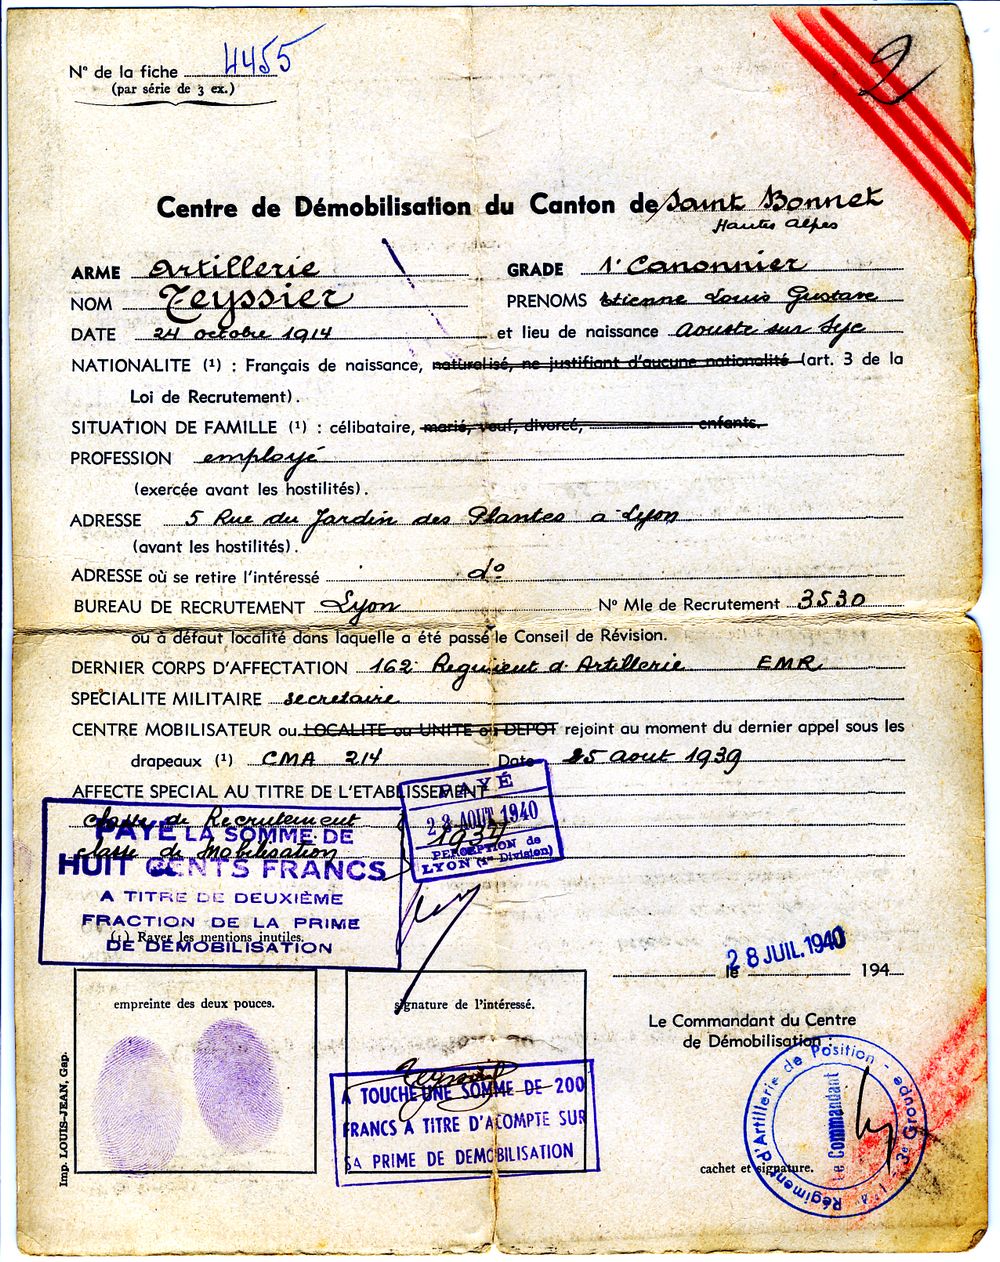 N° de la fiche 4455
(par série de 3 ex.)
2
Centre de Démobilisation du Canton de Saint Bonnet
Hautes Alpes
ARME Artillerie GRADE 1r Canonnier
NOM Teyssier PRENOMS Etienne Louis Gustave
DATE 24 octobre 1914 et lieu de naissance Aouste sur Sye
NATIONALITE (1) : Français de naissance, naturalisé, ne justifiant d'aucune nationalité (art. 3 de la
Loi de Recrutement).
SITUATION DE FAMILLE (1) : célibataire, marié, veuf, divorcé, enfants.
PROFESSION employé
(exercée avant les hostilités).
ADRESSE 5 Rue du Jardin des Plantes a Lyon
(avant les hostilités).
ADRESSE où se retire l'intéressé d°
BUREAU DE RECRUTEMENT Lyon N° Mle de Recrutement 3530
ou à défaut localité dans laquelle a été passé le Conseil de Révision.
DERNIER CORPS D'AFFECTATION 162e Regiment d'Artillerie EMR
SPECIALITE MILITAIRE secretaire
CENTRE MOBILISATEUR ou LOCALITE ou UNITE ou DEPOT rejoint au moment du dernier appel sous les
drapeaux (1) CMA 214 Date 25 Aout 1939
AFFECTE SPECIAL AU TITRE DE L'ETABLISSEMENT
classe de Recrutement 1934
classe de Mobilisation
PAYÉ
23 AOUT 1940
PERCEPTION de
LYON (1re Division)
PAYÉ LA SOMME DE
HUIT CENTS FRANCS
A TITRE DE DEUXIÈME
FRACTION DE LA PRIME
DE DÉMOBILISATION
(1) Rayer les mentions inutiles.
28 JUIL. 1940
le 194
empreinte des deux pouces.
signature de l'intéressé.
Teyssier
A TOUCHÉ UNE SOMME DE 200
FRANCS A TITRE D'ACOMPTE SUR
SA PRIME DE DEMOBILISATION
Le Commandant du Centre
de Démobilisation :
Régiment d'Artillerie de Position - 3e Groupe
Le Commandant
cachet et signature.
Imp. LOUIS-JEAN, Gap.